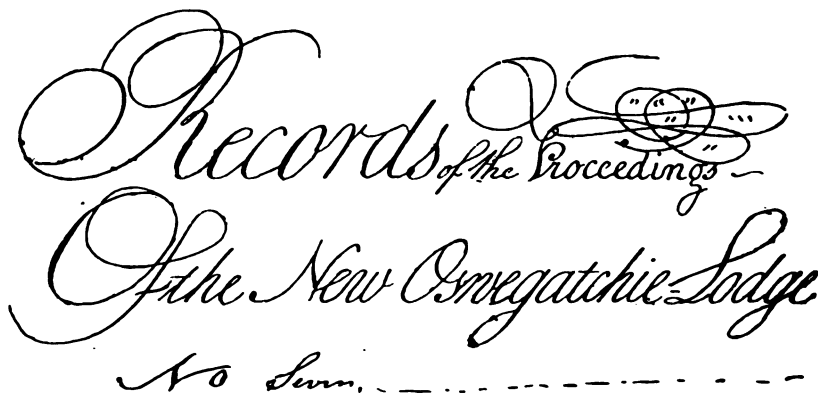 Records of the Proccedings
Of the New Oswegatchie Lodge
No Seven.